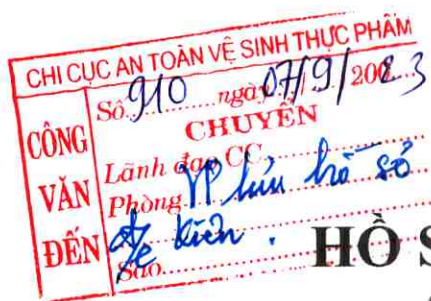 CHI CỤC AN TOÀN VỆ SINH THỰC PHẨM
CÔNG VĂN ĐẾN
Số 910 ngày 07/9/2023
CHUYỂN
Lãnh đạo CC
Phòng VP lưu hồ sơ
Sao
HỒ S